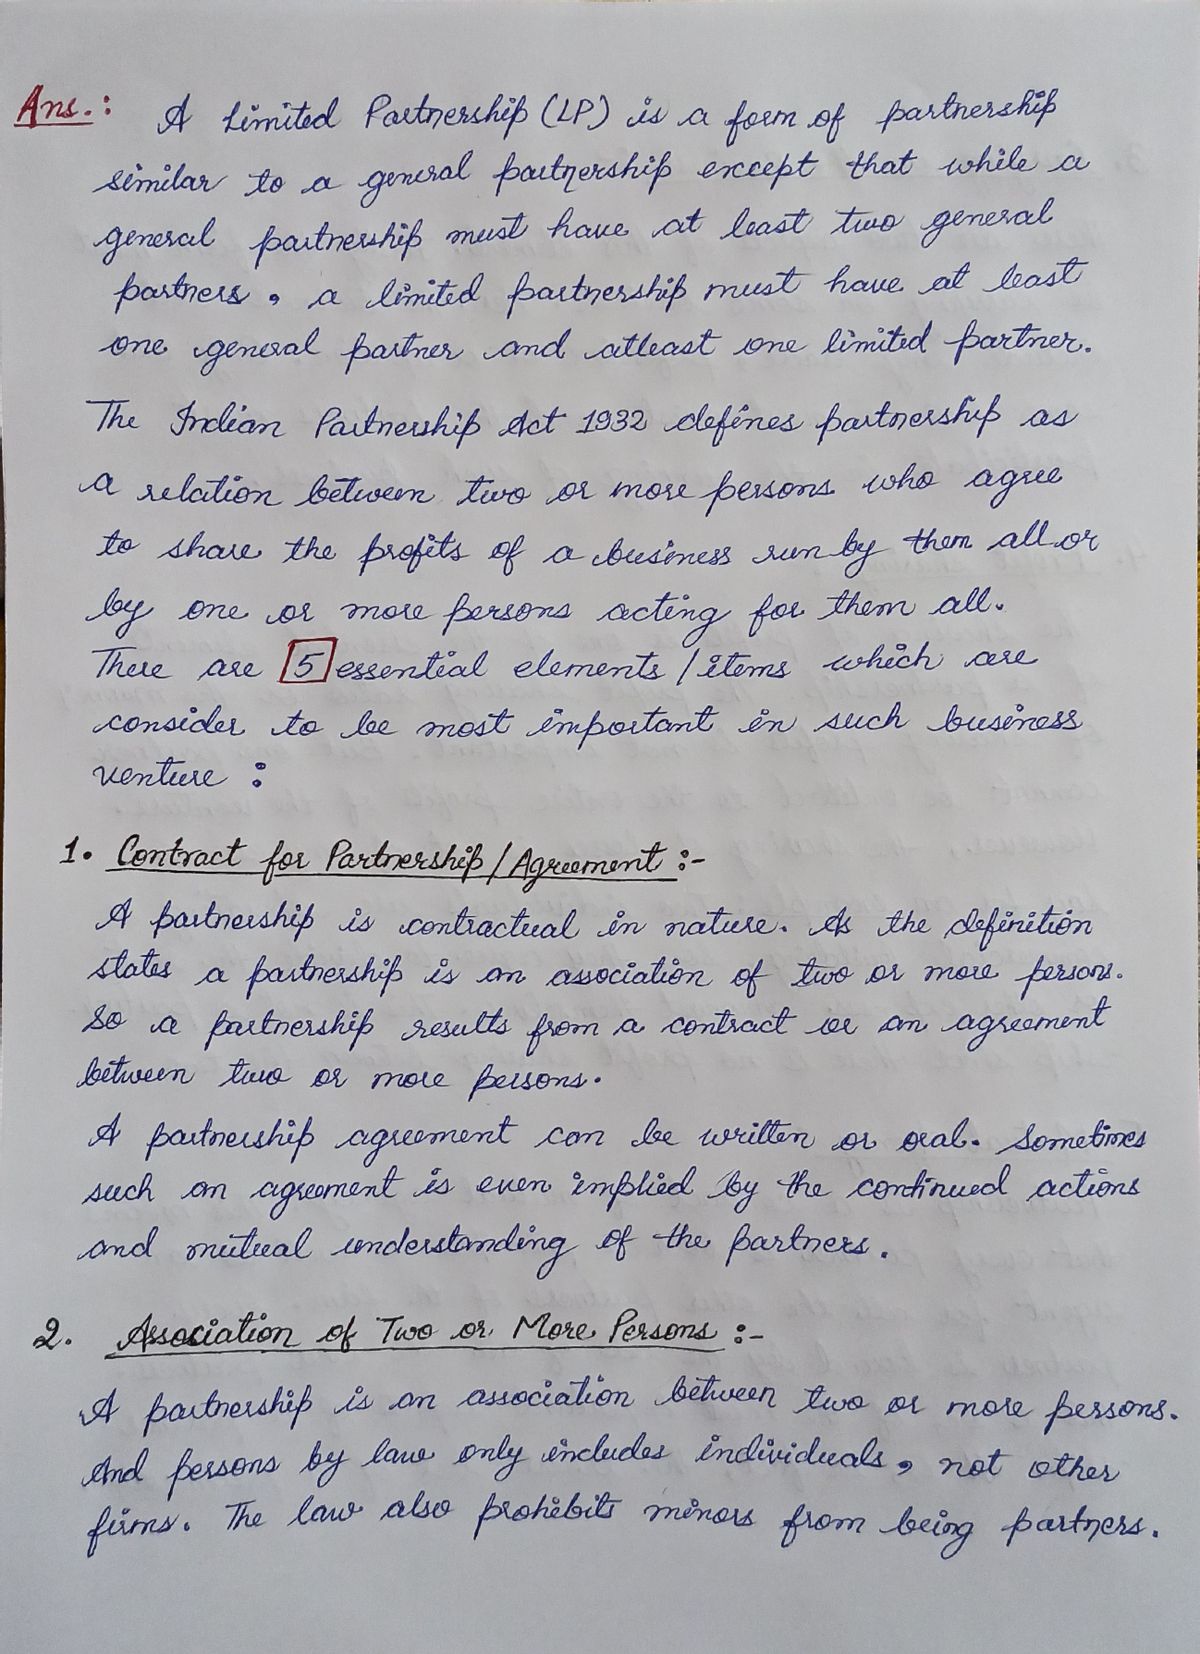 Ans.: A Limited Partnership (LP) is a form of partnership
similar to a general partnership except that while a
general partnership must have at least two general
partners, a limited partnership must have at least
one general partner and atleast one limited partner.
The Indian Partnership Act 1932 defines partnership as
a relation between two or more persons who agree
to share the profits of a business run by them all or
by one or more persons acting for them all.
There are 5 essential elements / items which are
consider to be most important in such business
venture :
1. Contract for Partnership / Agreement :-
A partnership is contractual in nature. As the definition
states a partnership is an association of two or more persons.
So a partnership results from a contract or an agreement
between two or more persons.
A partnership agreement can be written or oral. Sometimes
such an agreement is even implied by the continued actions
and mutual understanding of the partners.
2. Association of Two or More Persons :-
A partnership is an association between two or more persons.
And persons by law only includes individuals, not other
firms. The law also prohibits minors from being partners.